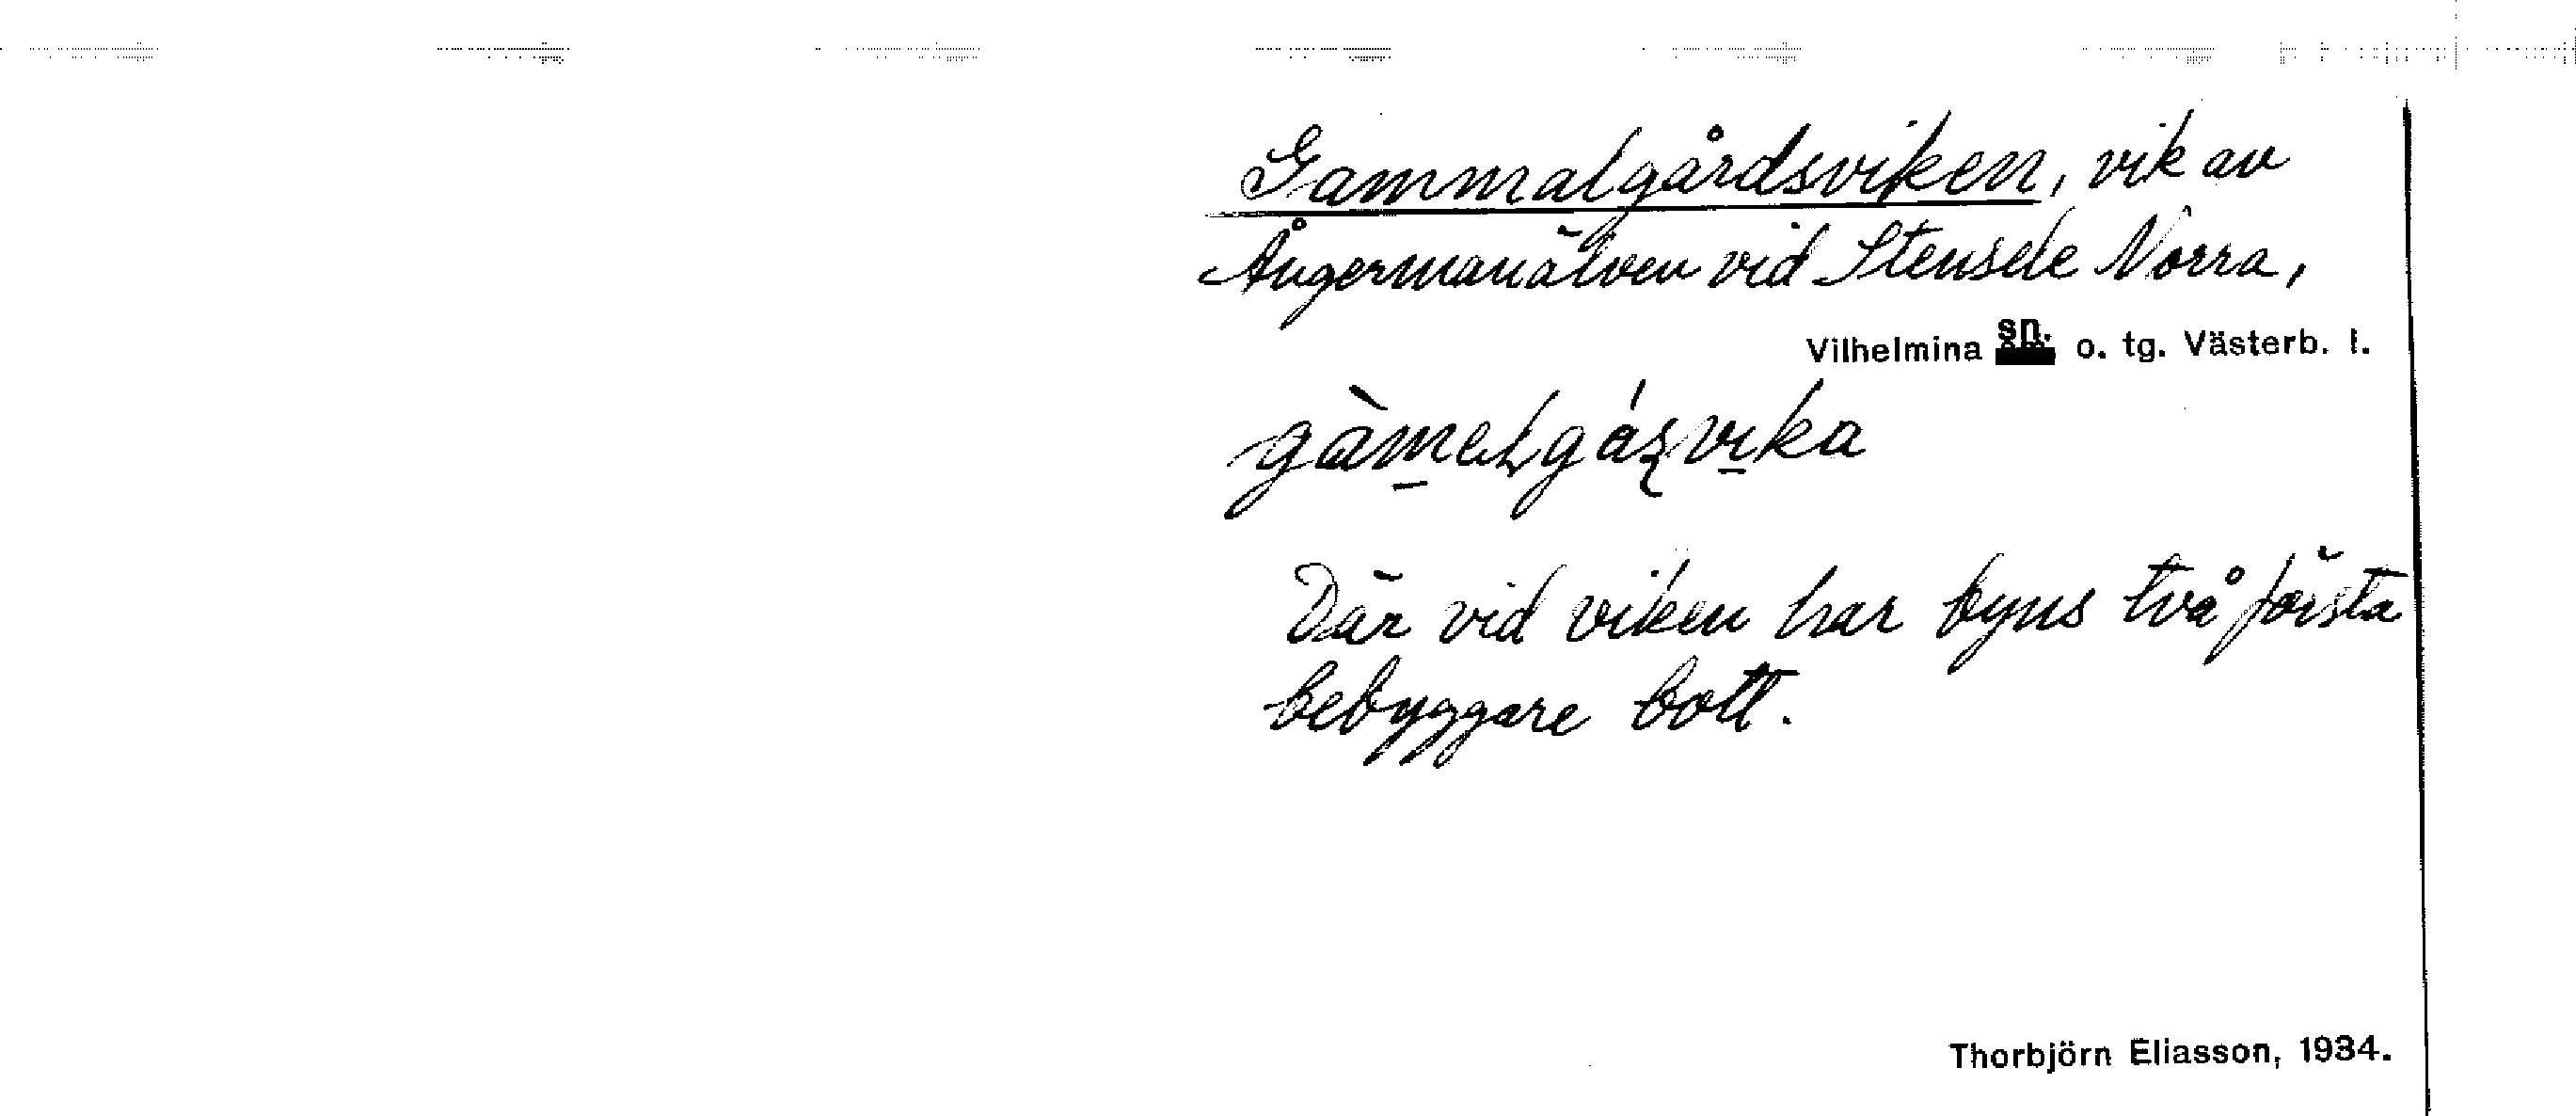 Gammalgårdsviken, vik av
Ångermanälven vid Stensele Norra,
Vilhelmina sn. o. tg. Västerb. l.
Där vid viken har byns två första
bebyggare bott.
Thorbjörn Eliasson, 1934.